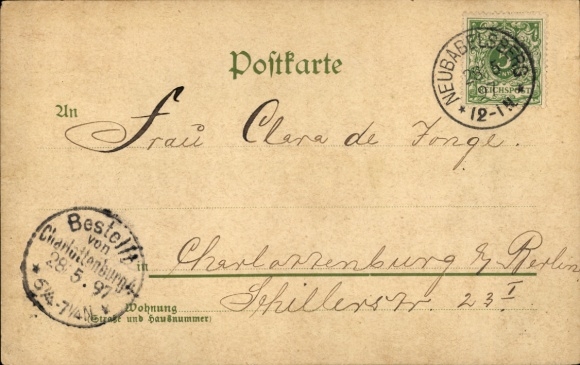 Postkarte
NEUBABELSBERG
28 5
12-1 N
REICHSPOST
An
Frau Clara de Jonge.
Bestellt
von
Charlottenburg
28.5.97
in Charlottenburg b/ Berlin
Schillerstr. 23 I
Wohnung
(Straße und Hausnummer)